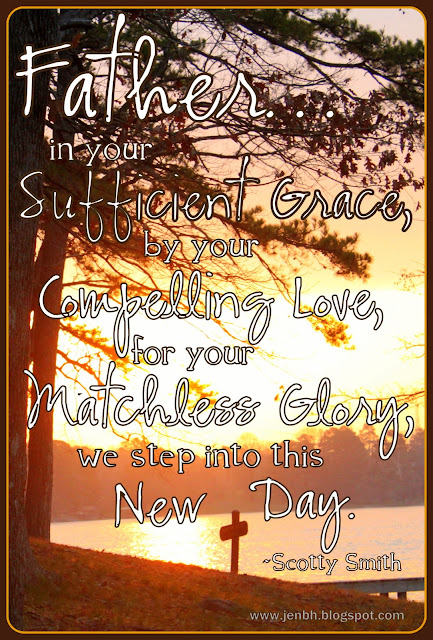 Father...
in your
Sufficient Grace,
by your
Compelling Love,
for your
Matchless Glory,
we step into this
New Day.
~Scotty Smith
www.jenbh.blogspot.com